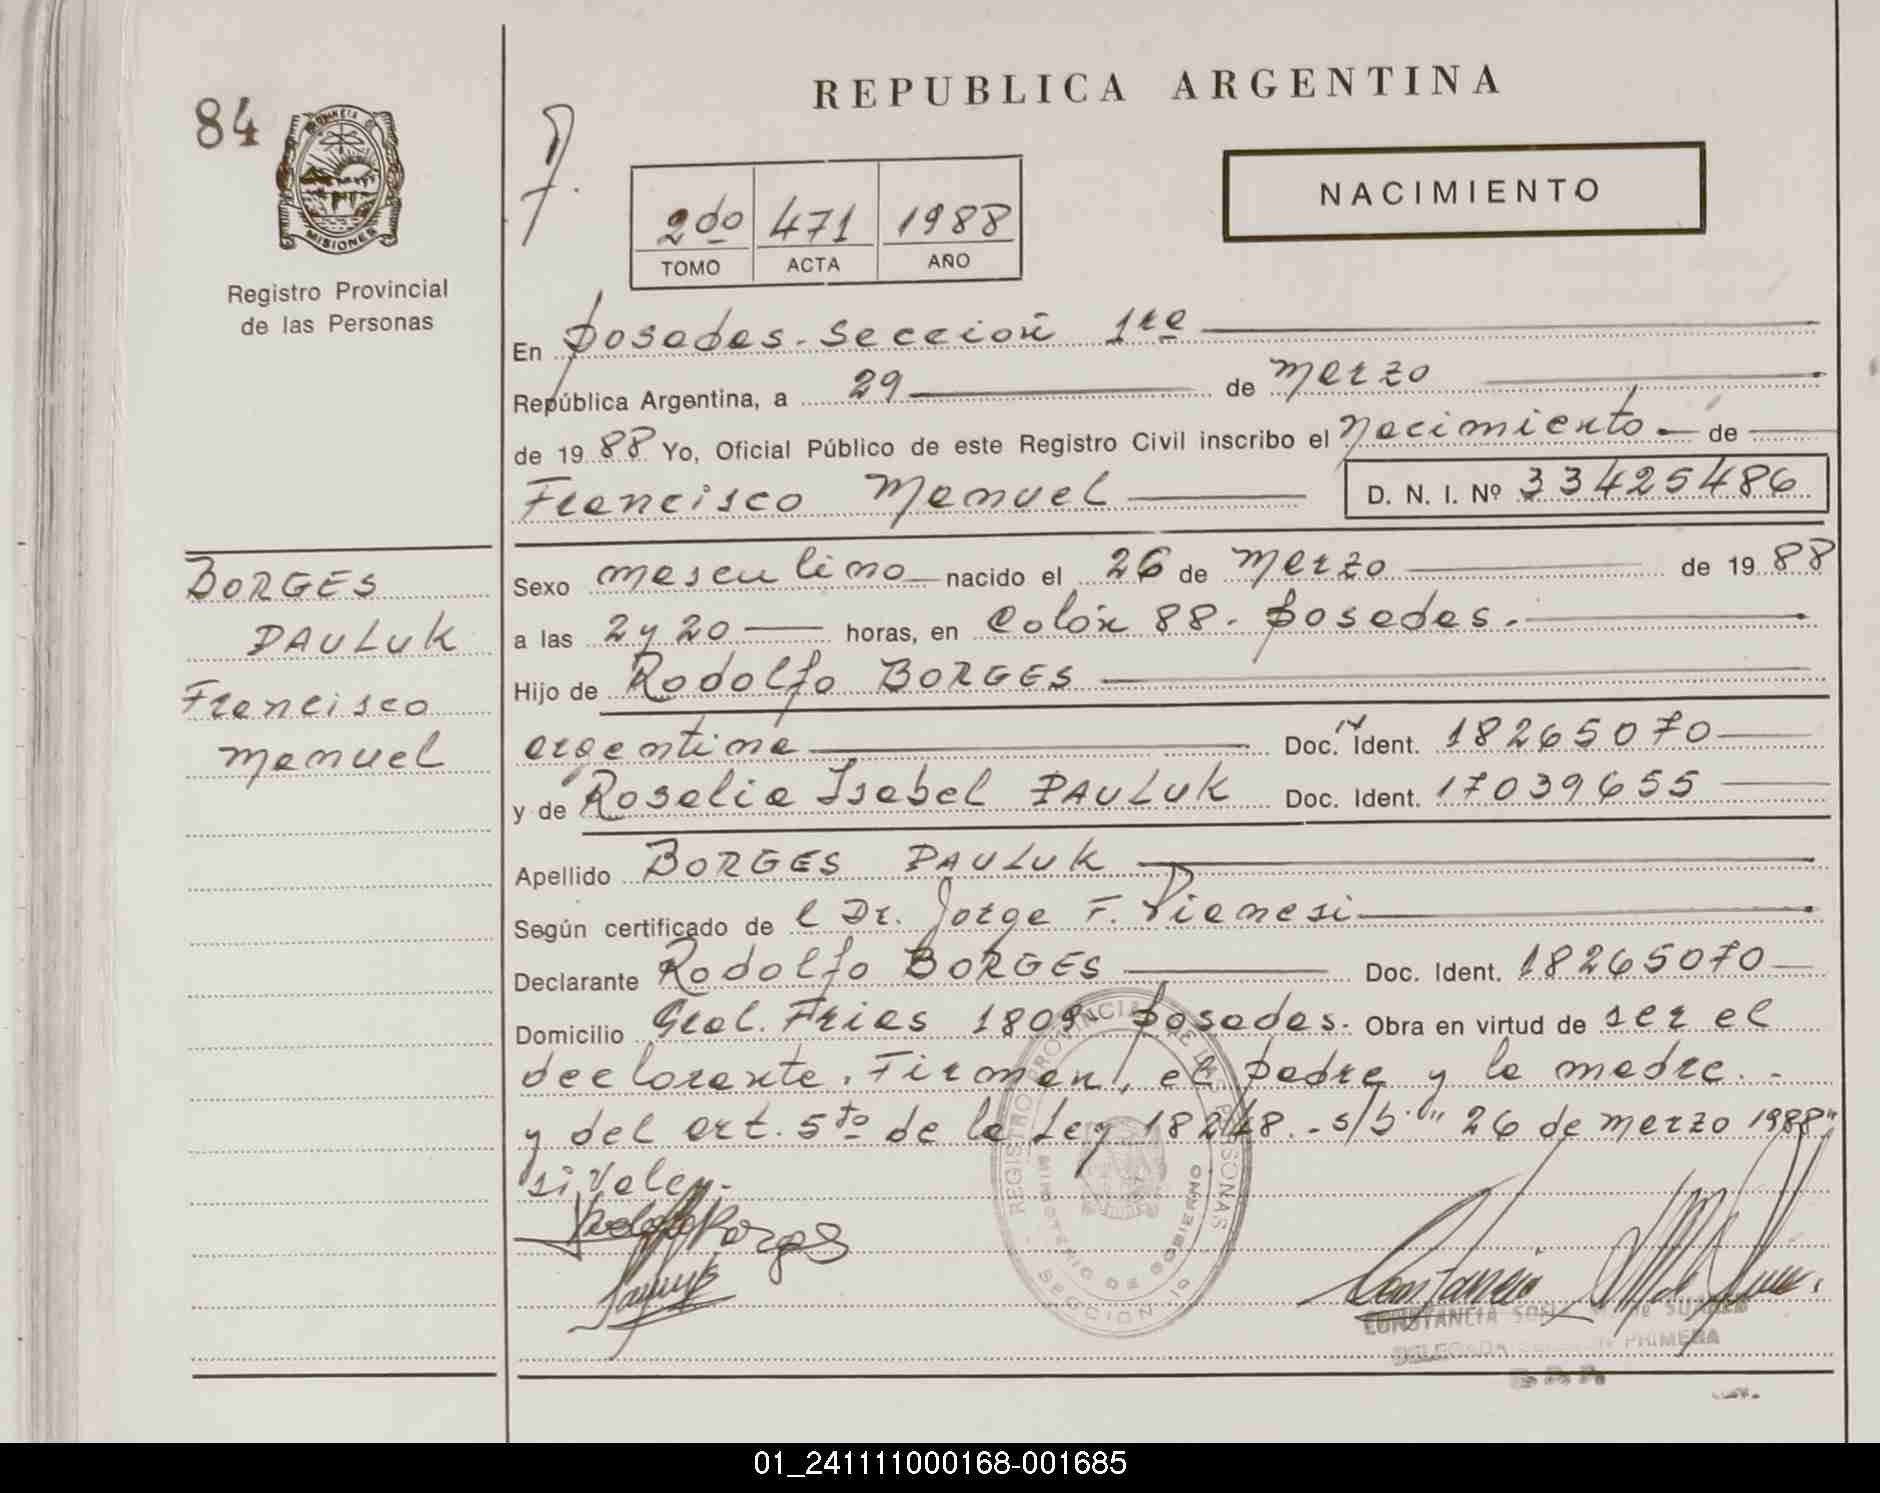 REPUBLICA ARGENTINA
84
PROVINCIA DE
MISIONES
Registro Provincial
de las Personas
2do 471 1988
TOMO ACTA AÑO
NACIMIENTO
En Posadas. Sección 1ra
República Argentina, a 29 de Marzo
de 19 88 Yo, Oficial Público de este Registro Civil inscribo el Nacimiento de
Francisco Manuel D. N. I. Nº 33425486
BORGES
PAULUK
Francisco
Manuel
Sexo masculino nacido el 26 de Marzo de 19 88
a las 2 y 20 horas, en Colón 88. Posadas.
Hijo de Rodolfo BORGES
argentina Doc. Ident. 18265070
y de Rosalia Isabel PAULUK Doc. Ident. 17039655
Apellido BORGES PAULUK
Según certificado de l Dr. Jorge F. Pianesi
Declarante Rodolfo BORGES Doc. Ident. 18265070
Domicilio Gral. Frias 1809. Posadas. Obra en virtud de ser el
declarante. Firman, el padre y la madre. -
y del art. 5to de la Ley 18248. - s/b " 26 de marzo 1988"
si vale. -
Rodolfo Borges
REGISTRO PROVINCIAL DE LAS PERSONAS
MINISTERIO DE GOBIERNO
SECCION 1a
CONSTANCIA SOFIA de SUAREZ
DELEGADA SECCION PRIMERA
01_241111000168-001685